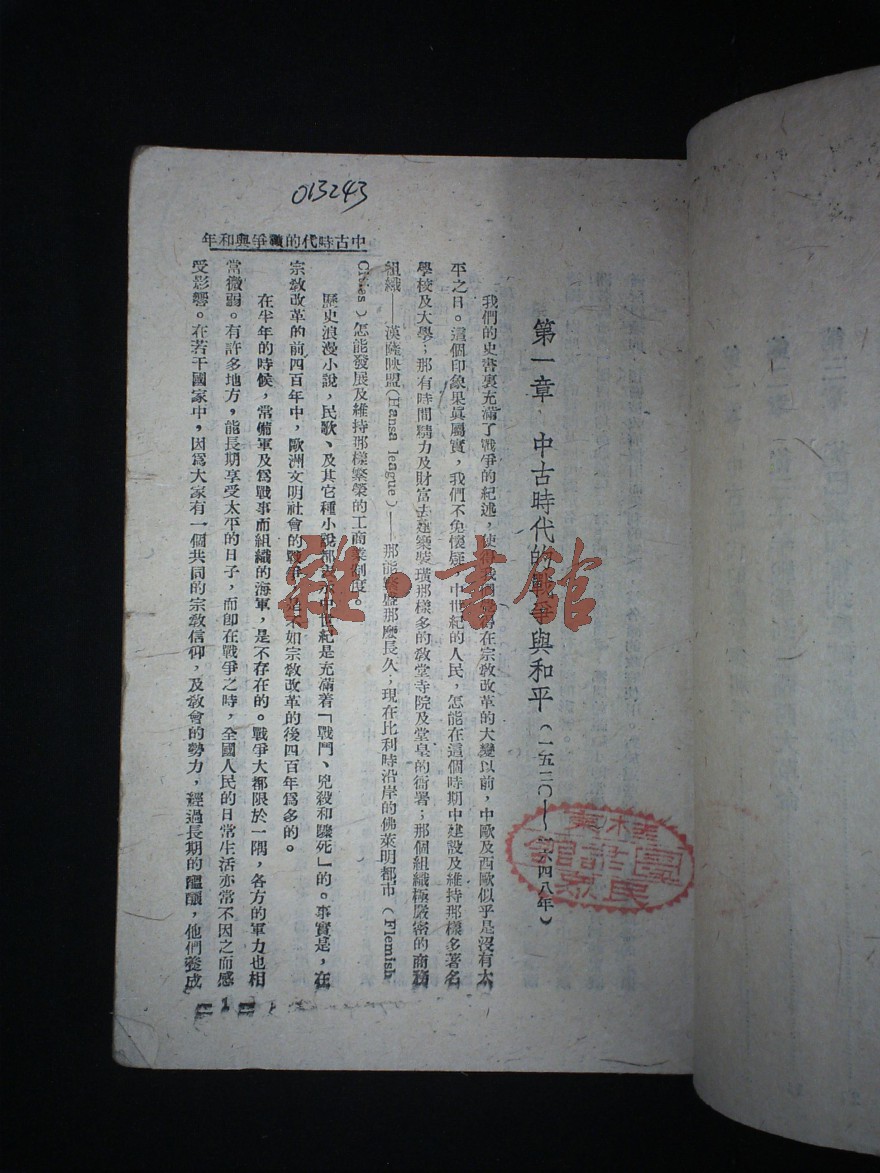 013243
中古時代的戰爭與和年
第一章 中古時代的戰爭與和平（一五二〇——一六四八年）
我們的史書裏充滿了戰爭的紀述，使得我們覺得在宗教改革的大變以前，中歐及西歐似乎是沒有太
平之日。這個印象果眞屬實，我們不免懷疑，中世紀的人民，怎能在這個時期中建設及維持那樣多著名
學校及大學；那有時間精力及財富去建築裝璜那樣多的教堂寺院及堂皇的衙署；那個組織極嚴密的商務
組織——漢薩映盟(Hansa league)——那能繁盛那麼長久；現在比利時沿岸的佛萊明都市（Flemish
Cities）怎能發展及維持那樣繁榮的工商業制度。
歷史浪漫小說，民歌、及其它種小說都表示中世紀是充滿着「戰鬥、兇殺和驟死」的。事實是，在
宗教改革的前四百年中，歐洲文明社會的戰爭，是不如宗教改革的後四百年爲多的。
在半年的時候，常備軍及爲戰事而組織的海軍，是不存在的。戰爭大都限於一隅，各方的軍力也相
當微弱。有許多地方，能長期享受太平的日子，而卽在戰爭之時，全國人民的日常生活亦常不因之而感
受影響。在若干國家中，因爲大家有一個共同的宗教信仰，及教會的勢力，經過長期的醞釀，他們養成
1
雜·書館